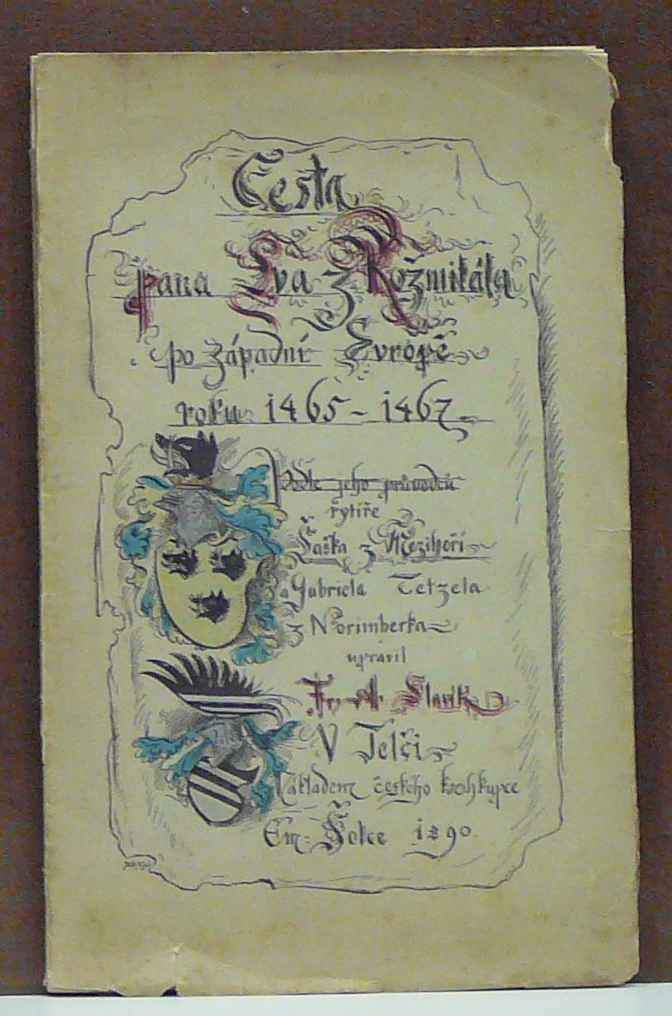 Cesta
pana Lva z Rožmitála
po západní Evropě
roku 1465 - 1467.
Podle jeho průvodčů
rytíře
Šaška z Mezihoří
a Gabriela Tetzela
z Norimberka
upravil
Slavík
V Telči
Nákladem českého knihkupce
Em. Šolce 1890.